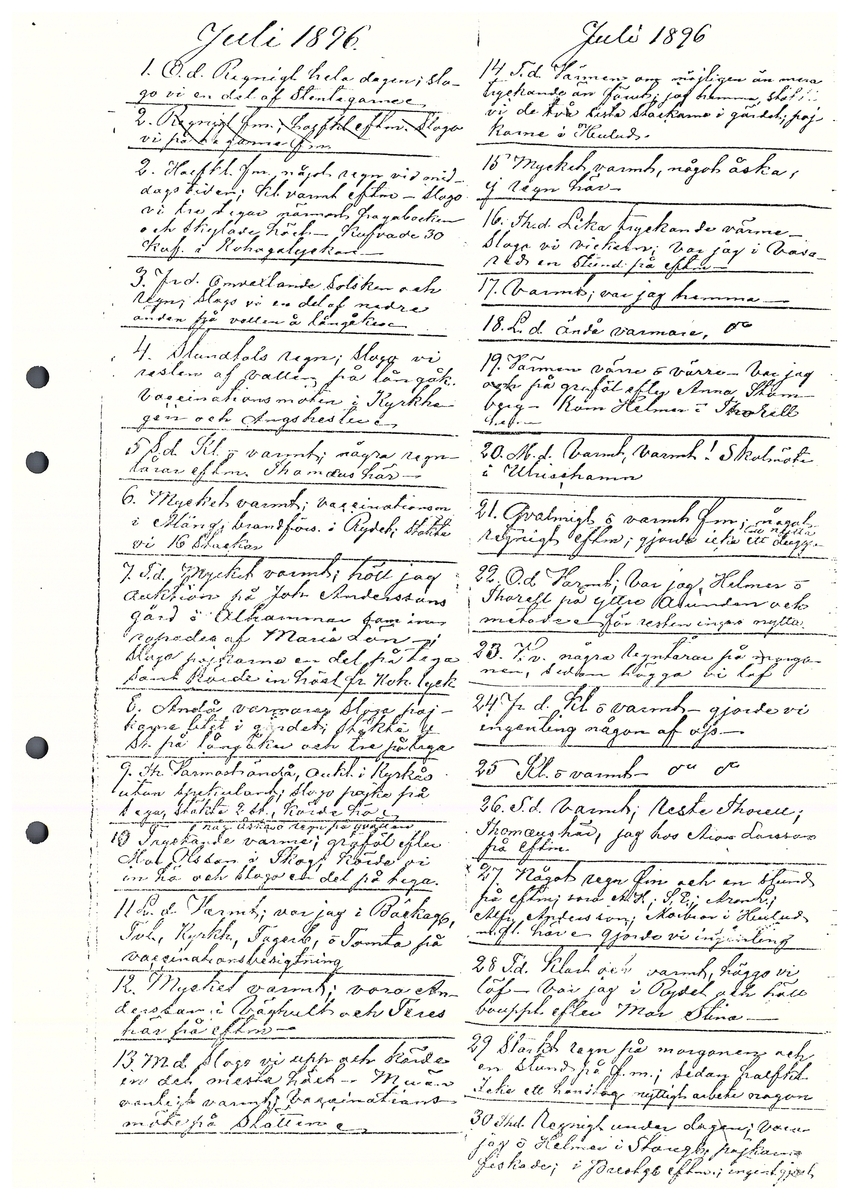 Juli 1896.
1. O.d. Regnigt hela dagen; slo-
go vi en del af Stentegarne
2. Regnigt fm.; halfkl. eftm. Sloge
vi på tegarne fm
2. Halfkl. fm, något regn vid mid-
dagstiden; kl. varmt eftm - Slogo
vi tre tegar närmast
och skylade höet - Kufvade 30
Kuf. i Kohagalyckan -
3. Frd. Omvexlande Solsken och
regn; slogo vi en del af nedre
änden på vallen å långåker
4. Stundtals regn; Slogo vi
resten af vallen på långåk.
Vaccinationsmöten i Kyrkhe
gen och
5 S.d. Kl. o varmt; några regn-
tårar eftm. Thomæus här -
6. Mycket varmt; vaccinationsm
i Mäng; brandförs. i Rydet; stakte
vi 16 stackar
7. T.d. Mycket varmt; höll jag
auktion på Joh. Anderssons
gård i Ölhammar som in-
ropades af Maria Lön -
Slogo pojkarne en del på tega
samt körde in höet fr. Koh. lyck
8. Ändå varmare; sloga poj-
karne litet i gärdet; stakte
st. på långåker och tre på tega
9. Th. Varmast ändå, Aukt. i Kyrkås
utan spekuland; slogo pojke på
tega, stakte 2 st., körde hö
något åskregn på qvällen
10 Tryckande varme; graföl efter
Olsson i Skog, körde vi
in hö och slogo en del på tega.
11 L.d. Varmt; var jag i Bäckagb,
Tvl, Kyrkh, Fagerb, o Tomta på
vaccinationsbesigtning
12. Mycket varmt; voro An-
derssan i Väghult och Feres
här på eftm -
13. M.d. Slogo vi upp och körde
en del mesta höet -
vanligt varmt; Vaccinations-
möte på Slätten
Juli 1896
14 T.d. Värmen om möjligen än mera
tryckande än förut; jag hemma,
vi de två sista stackarne i gärdet; poj
karne i Hulud.
15 Mycket varmt, något åska,
ej regn här -
16. Th.d. Lika tryckande värme -
Slogo vi vickern; var jag i Vara-
red en stund på eftm -
17. Varmt; var jag hemma -
18. L.d. ändå varmare,
19. Värmen värre o värre - Var jag
på graföl efter Anna Stom
berg - Kom Helmer o Thorell
20. M.d. Varmt, varmt! Skolmöte
i Ulricehamn
21. Qvalmigt o varmt fm; något
regnigt eftm; gjorde icke ett dugg -
22. O.d Varmt; Var jag, Helmer o
Thorell på yttre Åsunden och
metade för resten ingen nytta
23. några regntårar på morgo-
nen, sedan höggo vi löf
24 Fr. d. Kl o varmt - gjorde vi
ingenting någon af oss -
25 Kl. o varmt -
26. S.d. Varmt; reste Thorell;
Thomæus här, jag hos Aron Larsson
på eftm.
27. Något regn fm och en stund
på eftm; Aronk;
Alfr. Andersson; i Hulud
m.fl. här gjorde vi ingenting
28 T.d. Klart och varmt, höggo vi
löf - Var jag i Rydet och höll
boupp. efter Mor Stina -
29 Starkt regn på morgonen och
en stund på f.m.; sedan halfkl.
Icke ett handtag nyttigt arbete någon
30 Th.d. Regnigt under dagen; voro
jag o Helmer i pojkarne
fiskade; i eftm; intet gjort